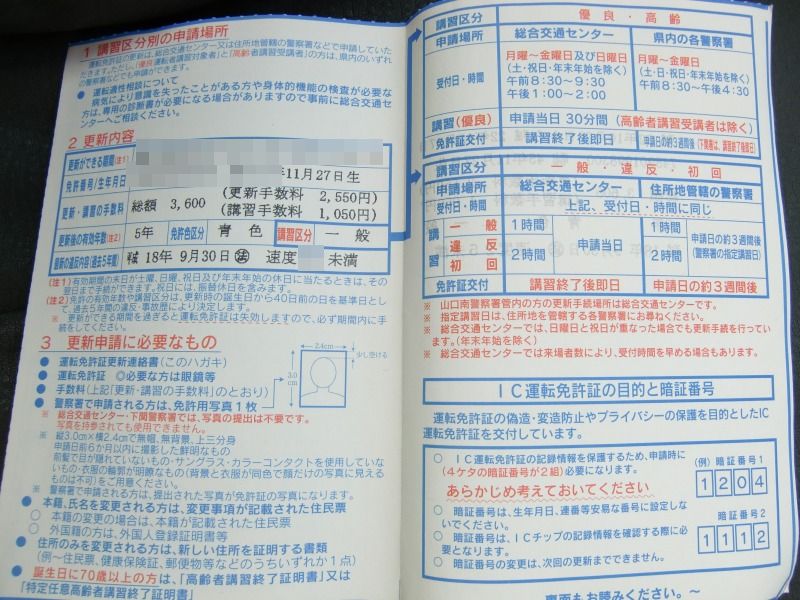 1 講習区分別の申請場所
運転免許証の更新は、総合交通センター又は住所地管轄の警察署などで申請していた
だきます。ただし、「優良運転者講習対象者」と「高齢者講習受講者」の方は、県内のいずれ
の警察署などでも申請ができます。
● 運転適性相談について
病気により意識を失ったことがある方や身体的機能の検査が必要な
方は、専用の診断書が必要になる場合がありますので事前に総合交通セ
ンターへご相談ください。
2 更新内容
更新ができる期間(注1)
免許番号/生年月日 年11月27日生
更新・講習の手数料 総額 3,600 (更新手数料 2,550円)
(講習手数料 1,050円)
更新後の有効年数(注2) 5年 免許色区分 青色 講習区分 一般
最新の違反内容(過去5年間) 18年 9月30日 速度 未満
(注1)有効期間の末日が土曜、日曜、祝日及び年末年始の休日に当たるときは、その
翌日まで手続ができます。祝日には、振替休日を含みます。
(注2)免許の有効年数や講習区分は、更新時の誕生日から40日前の日を基準日とし
て、過去5年間の違反・事故歴により決定します。
※ 更新ができる期間を過ぎると運転免許証は失効しますので、必ず期間内に手
続をしてください。
3 更新申請に必要なもの
● 運転免許証更新連絡書(このハガキ)
● 運転免許証 ◎必要な方は眼鏡等
● 手数料(上記「更新・講習の手数料」のとおり)
● 警察署で申請される方は、免許用写真1枚
2.4cm
少し空ける
3.0cm
※ 総合交通センター・下関警察署では、写真の提出は不要です。
写真を持参されても使用できません。
※ 縦3.0cm×横2.4cmで無帽、無背景、上三分身
申請日前6か月以内に撮影した鮮明なもの
前髪で目が隠れていないもの・サングラス・カラーコンタクトを使用していな
いもの・衣服の輪郭が明瞭なもの(背景と衣服が同色で顔だけの写真に見える
ものは不可)をご用意ください。
※ 警察署で申請される方は、提出された写真が免許証の写真になります。
● 本籍、氏名を変更される方は、変更事項が記載された住民票
○ 本籍の変更の場合は、本籍が記載された住民票
○ 外国籍の方は、外国人登録証明書等
● 住所のみを変更される方は、新しい住所を証明する書類
(例〜住民票、健康保険証、郵便物等などのうちいずれか1点)
● 誕生日に70歳以上の方は、「高齢者講習終了証明書」又は
「特定任意高齢者講習終了証明書」
講習区分 優良・高齢
申請場所 総合交通センター 県内の各警察署
受付日・時間
月曜〜金曜日及び日曜日
(土・祝日・年末年始を除く)
午前8:30〜9:30
午後1:00〜2:00
月曜〜金曜日
(土・祝日・年末年始を除く)
午前8:30〜午後4:30
講習(優良) 申請当日 30分間(高齢者講習受講者は除く)
免許証交付 講習終了後即日 申請日の約3週間後(下関署は、講習終了後即日)
講習区分 一般・違反・初回
申請場所 総合交通センター 住所地管轄の警察署
受付日・時間 上記、受付日・時間に同じ
講習 一般 1時間 申請当日 1時間 申請日の約3週間後
(警察署の指定講習日)
違反 2時間 2時間
初回
免許証交付 講習終了後即日 申請日の約3週間後
※ 山口南警察署管内の方の更新手続場所は総合交通センターです。
※ 指定講習日は、住所地を管轄する各警察署にお尋ねください。
※ 総合交通センターでは、日曜日と祝日が重なった場合でも更新手続を行ってい
ます。(年末年始を除く)
※ 総合交通センターでは来場者数により、受付時間を早める場合もあります。
IC運転免許証の目的と暗証番号
運転免許証の偽造・変造防止やプライバシーの保護を目的としたIC
運転免許証を交付しています。
○ IC運転免許証の記録情報を保護するため、申請時に
(4ケタの暗証番号が2組)必要になります。
あらかじめ考えておいてください
○ 暗証番号は、生年月日、連番等安易な番号に設定し
ないでください。
○ 暗証番号は、ICチップの記録情報を確認する際に必
要となります。
○ 暗証番号の変更は、次回の更新までできません。
(例) 暗証番号1
1204
暗証番号2
1112
裏面もお読みください。〜